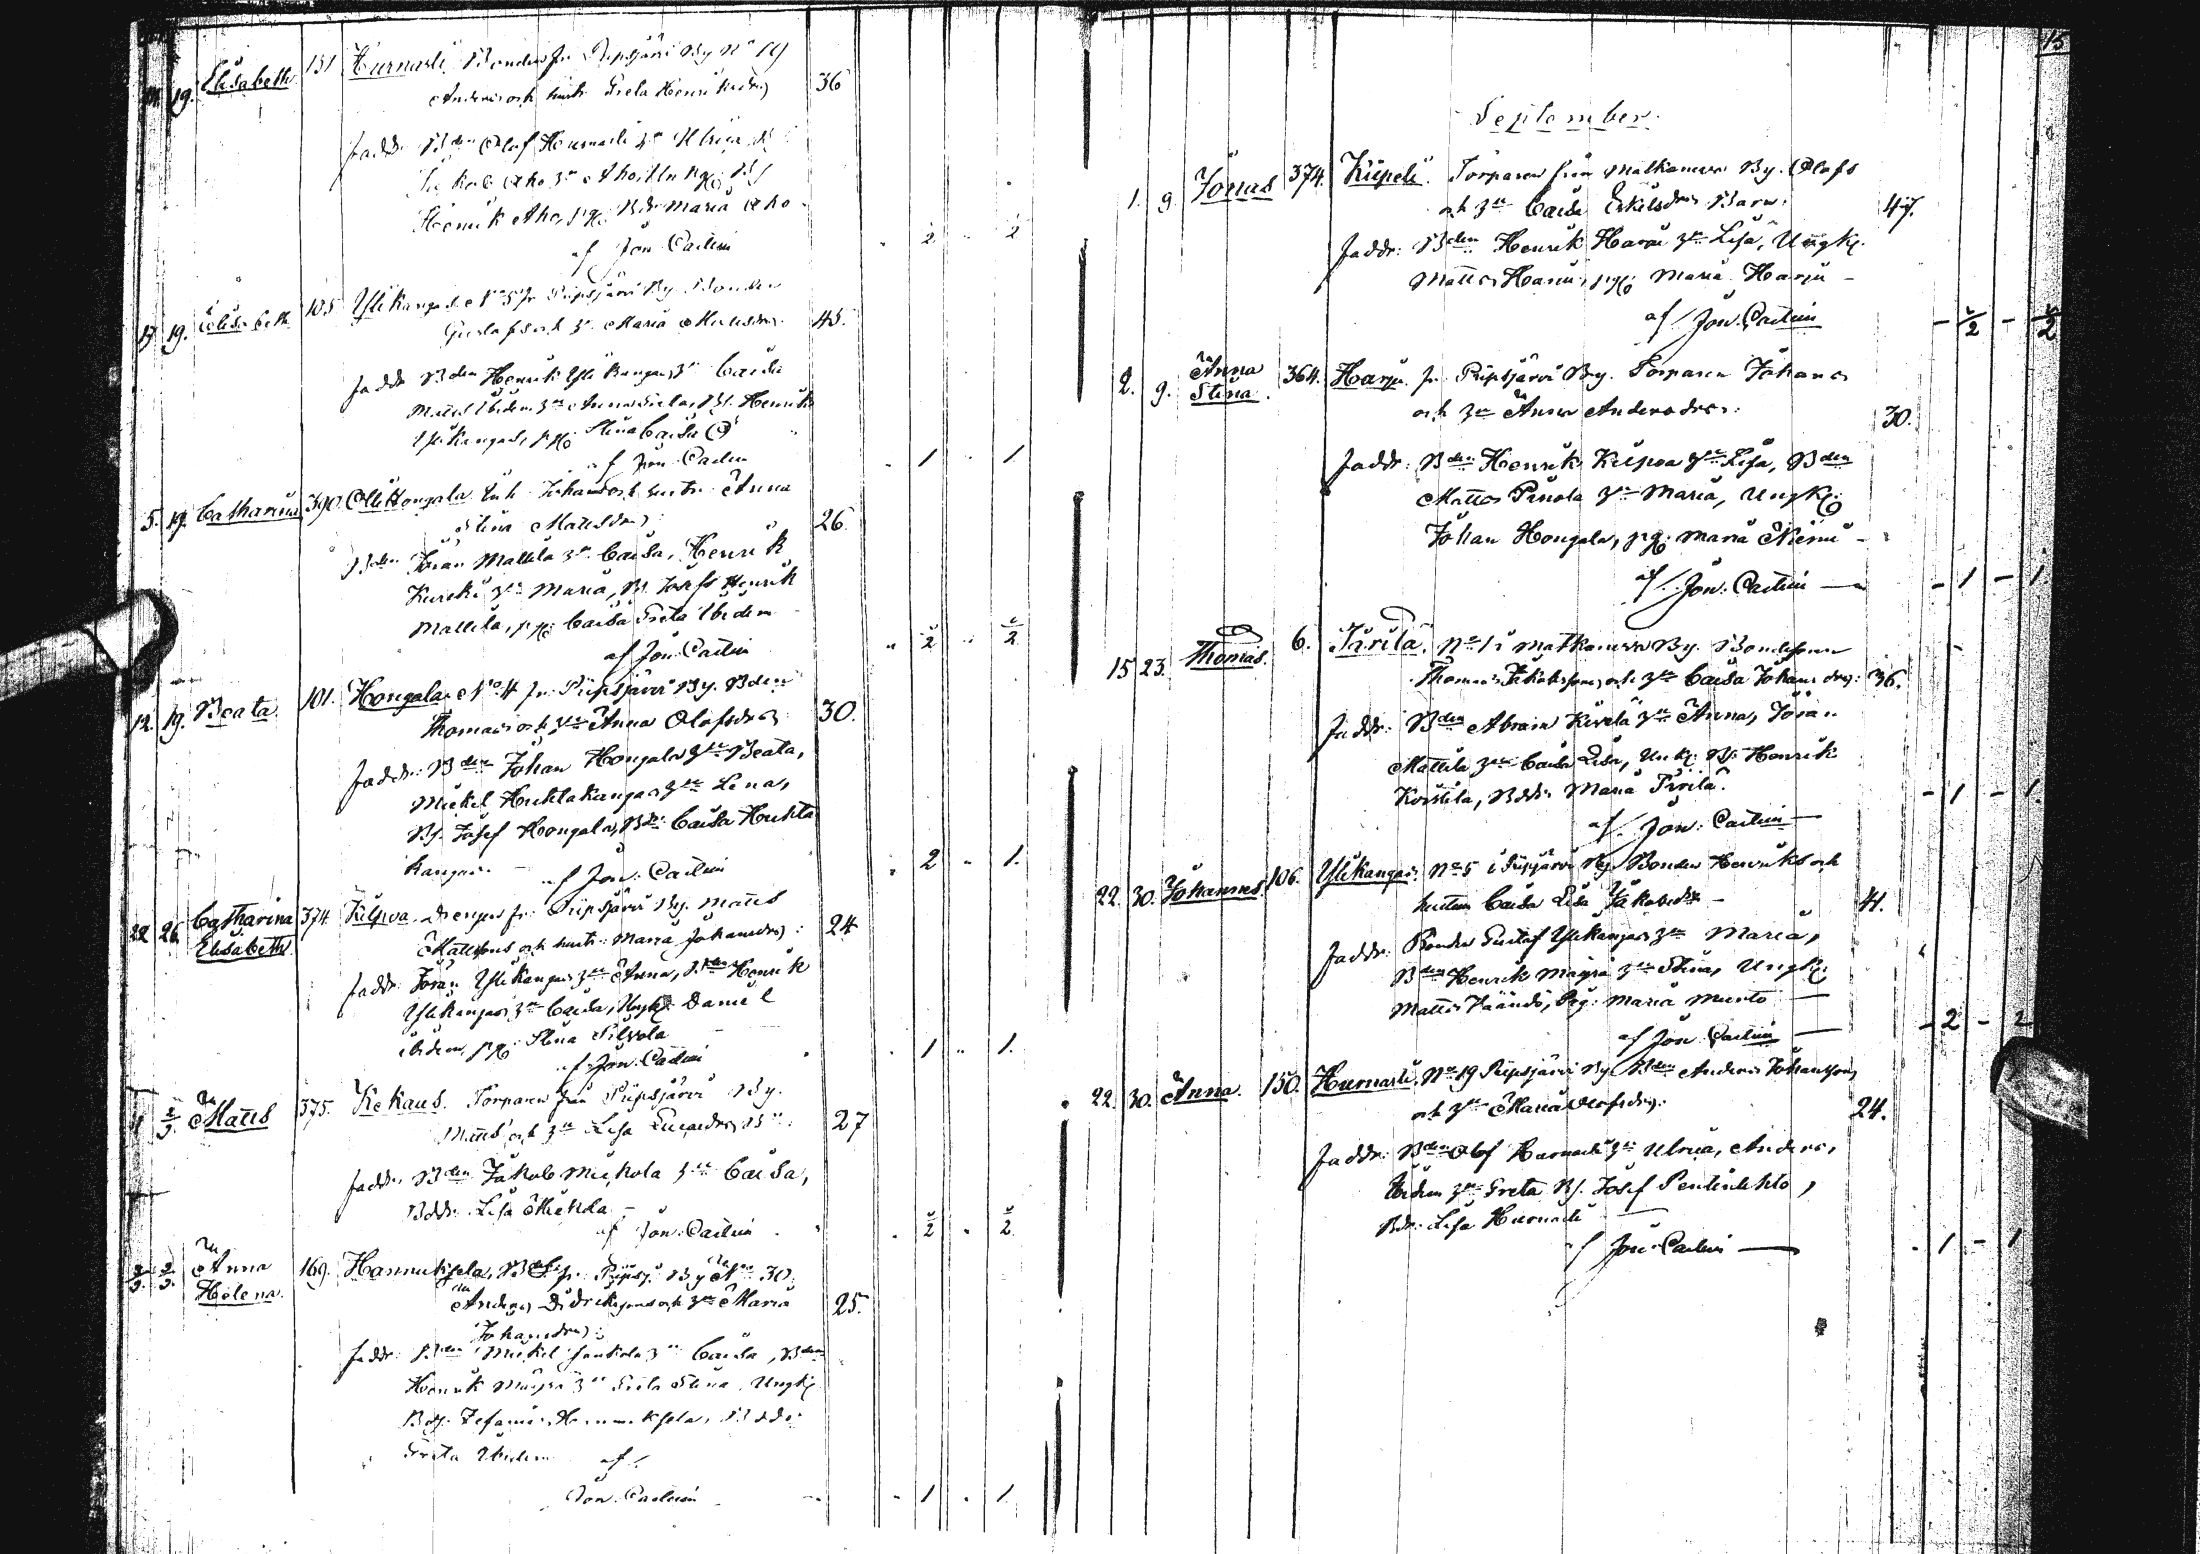 14. 19. Elisabeth 151 Hurnasti Bonden fr. Pipsjärvi By No 19
Anders och hustr. Greta Henriksdr 36
Faddr. Bden Olof Hurnasti h:u Ulrica, B
Jakob Aho h:u
Henrik Aho, pig. Bdr Maria Aho
af Jon. Castrén
2 2
17 19. Elisabeth 105 Ylikangas No 5 fr. Pipsjärvi By Bonden
Gustaf och h:u Maria Mickelsdr 45.
Faddr Bden Henrik Ylikangas h:u Caisa
Matts Ibidem h:u Anna Greta, Bs. Henrik
Ylikangas, pig. Stina Caisa
af Jon. Castrén
1 1
5. 19. Catharina 390. Olli Hongala Inh. Johan och hustr. Anna
Stina Mattsdr 26.
Bden Jöran Mattila h:u Caisa, Henrik
Kureki h:u Maria, B. Josefs Henrik
Mattila, pig. Caisa Greta Ibidem
af Jon. Castrén
2 2
12. 19. Beata 101. Hongala No 4 fr. Pipsjärvi By. Bden
Thomas och h:u Anna Olofsdr 30.
Faddr: Bden Johan Hongala h:u Beata,
Mickel Huhtakangas h:u Lena,
Bs. Josef Hongala, Bdr Caisa Huhta
kangas. af Jon. Castrén
2 1.
22 26 Catharina Elisabeth 374 Kilpua, Drengen fr. Pipsjärvi By. Matts
Mattsson och hustr. Maria Johansdr: 24
Faddr. Jöran Ylikangas h:u Anna, Bden Henrik
Ylikangas h:u Caisa, Ungk. Daniel
ibidem, pig. Stina Silvola
af Jon. Castrén
1 1.
Matts 375. Kekaus. Torparen från Pipsjärvi By.
Matts och h:u Lisa 27
Faddr. Bden Jakob Mickola h:u Caisa,
Bdr. Lisa Mickola
af Jon. Castrén
2 2
Anna Helena. 169. Hannuksela, Bs fr. Pipsj. By No 30.
Anders Didriksson och h:u Maria 25.
Johansdr:
Faddr. Bden Mickel Jaukola h:u Caisa, Bden
Henrik Mäyrä h:u Greta Stina, Ungk.
Bs. Zefanias Hannuksela, Bdr
Greta Ibidem af
Jon. Castrén
1 1.
15
September.
1. 9. Jonas 374. Kiipeli. Torparen från Matkaneva By. Olofs
och h:u Caisa Eskilsdr Barn: 47.
Faddr: Bden Henrik Harju h:u Lisa, Ungk.
Matts Harju, pig. Maria Harju -
af Jon. Castrén
- 2 - 2
2. 9. Anna Stina. 364. Harju fr. Pipsjärvi By. Torparen Johan
och h:u Anna Andersdr: 30.
Faddr: Bden Henrik Kilpua h:u Lisa, Bden
Matts Pinola h:u Maria, Ungk.
Johan Hongala, pig. Maria Niemi -
af Jon. Castrén
- 1 - 1.
15 23. Thomas. 6. Pirilä, No 1 i Matkaneva By. Bondesonen
Thomas Jakobsson och h:u Caisa Johansdr: 36.
Faddr. Bden Abram Kivelä h:u Anna, Jöran
Mattila h:u Caisa Lisa, Unk. Bs. Henrik
Koistila, Bdr. Maria Pirilä.
af. Jon. Castrén
- 1 - 1.
22. 30. Johannes. 106. Ylikangas. No 5 i Pipsjärvi By. Bonden Henriks och
hustrun Caisa Lisa Jakobsdr - 41.
Faddr. Bonden Gustaf Ylikangas h:u Maria,
Bden Henrik Mäyrä h:u Stina, Ungk.
Matts Väändö, Pig. Maria Murto
af Jon. Castrén
- 2 - 2
22. 30. Anna. 150. Hurnasti, No 19 Pipsjärvi By Bden Anders Johansson
och h:u Maria Olofsdr: 24.
Faddr. Bden Olof Hurnasti h:u Ulrica, Anders,
Ibidem h:u Greta Bs. Josef Pentinlehto,
Bdr. Lisa Hurnasti
af Jon. Castrén
1 - 1